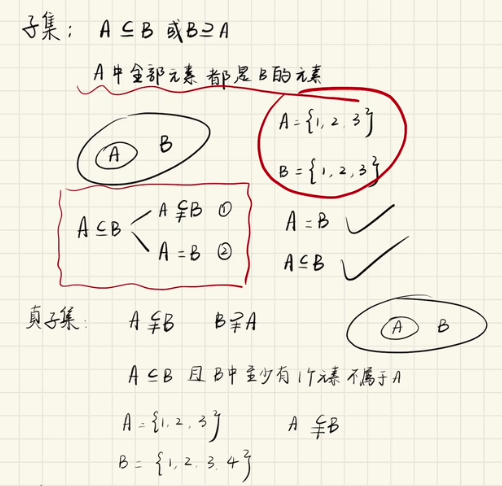 子集: A⊆B 或B⊇A
A中全部元素都是B的元素
A B
A={1,2,3}
B={1,2,3}
A⊆B
A⫋B ①
A=B ②
A=B ✓
A⊆B ✓
真子集: A⫋B B⫌A
A B
A⊆B 且B中至少有1个元素不属于A
A={1,2,3} A⫋B
B={1,2,3,4}